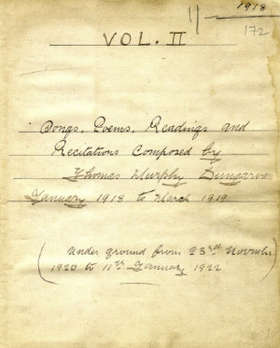 1918
172
VOL. II
Songs, Poems, Readings and
Recitations Composed by
Thomas Murphy Dungarvan
January 1918 to March 1919
(Under ground from 23rd November
1920 to 11th January 1922)